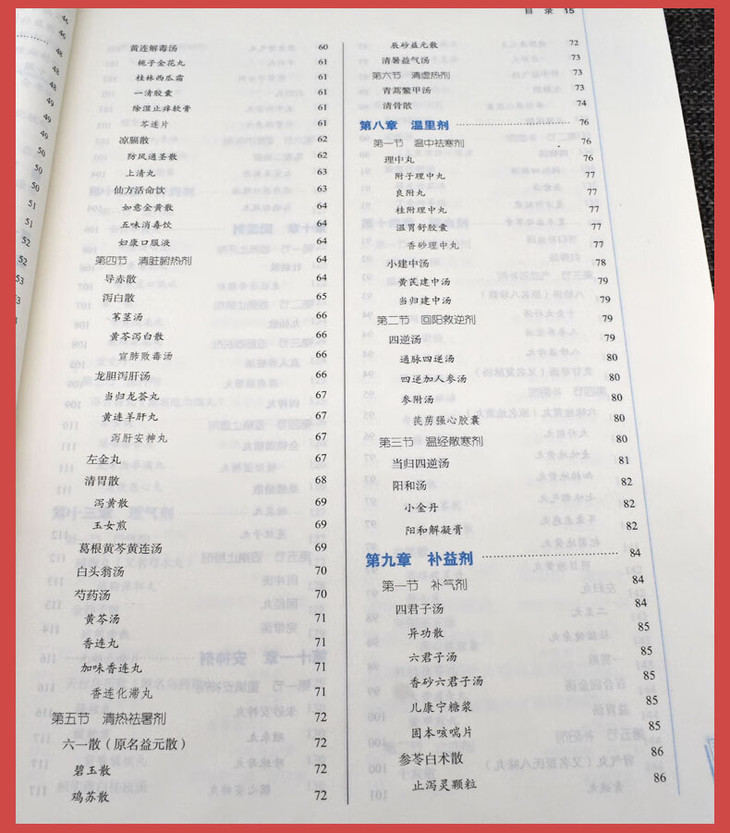 目 录 15
黄连解毒汤 60
栀子金花丸 61
桂林西瓜霜 61
一清胶囊 61
除湿止痒软膏 61
芩连片 61
凉膈散 62
防风通圣散 62
上清丸 63
仙方活命饮 63
如意金黄散 64
五味消毒饮 64
妇康口服液 64
第四节 清脏腑热剂 64
导赤散 64
泻白散 65
苇茎汤 66
黄芩泻白散 66
宣肺败毒汤 66
龙胆泻肝汤 66
当归龙荟丸 67
黄连羊肝丸 67
泻肝安神丸 67
左金丸 67
清胃散 68
泻黄散 69
玉女煎 69
葛根黄芩黄连汤 69
白头翁汤 70
芍药汤 70
黄芩汤 71
香连丸 71
加味香连丸 71
香连化滞丸 71
第五节 清热祛暑剂 72
六一散（原名益元散） 72
碧玉散 72
鸡苏散 72
辰砂益元散 72
清暑益气汤 73
第六节 清虚热剂 73
青蒿鳖甲汤 73
清骨散 74
第八章 温里剂 76
第一节 温中祛寒剂 76
理中丸 76
附子理中丸 77
良附丸 77
桂附理中丸 77
温胃舒胶囊 77
香砂理中丸 77
小建中汤 78
黄芪建中汤 79
当归建中汤 79
第二节 回阳救逆剂 79
四逆汤 79
通脉四逆汤 80
四逆加人参汤 80
参附汤 80
芪苈强心胶囊 80
第三节 温经散寒剂 80
当归四逆汤 81
阳和汤 82
小金丹 82
阳和解凝膏 82
第九章 补益剂 84
第一节 补气剂 84
四君子汤 84
异功散 85
六君子汤 85
香砂六君子汤 85
儿康宁糖浆 85
固本咳喘片 85
参苓白术散 86
止泻灵颗粒 86